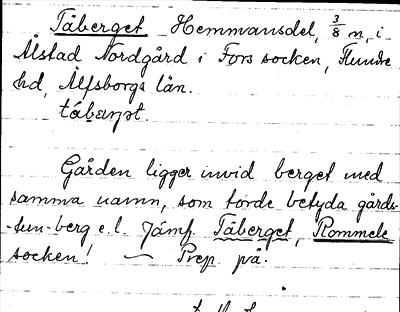 Tåberget Hemmansdel, 3/8 m, i
Ålstad Nordgård i Fors socken, Flundre
hd, Älfsborgs län.
Gården ligger invid berget med
samma namn, som torde betyda gårds-
-tun-berg e. l. Jämf. Tåberget, Rommele
socken! — Prep. på.